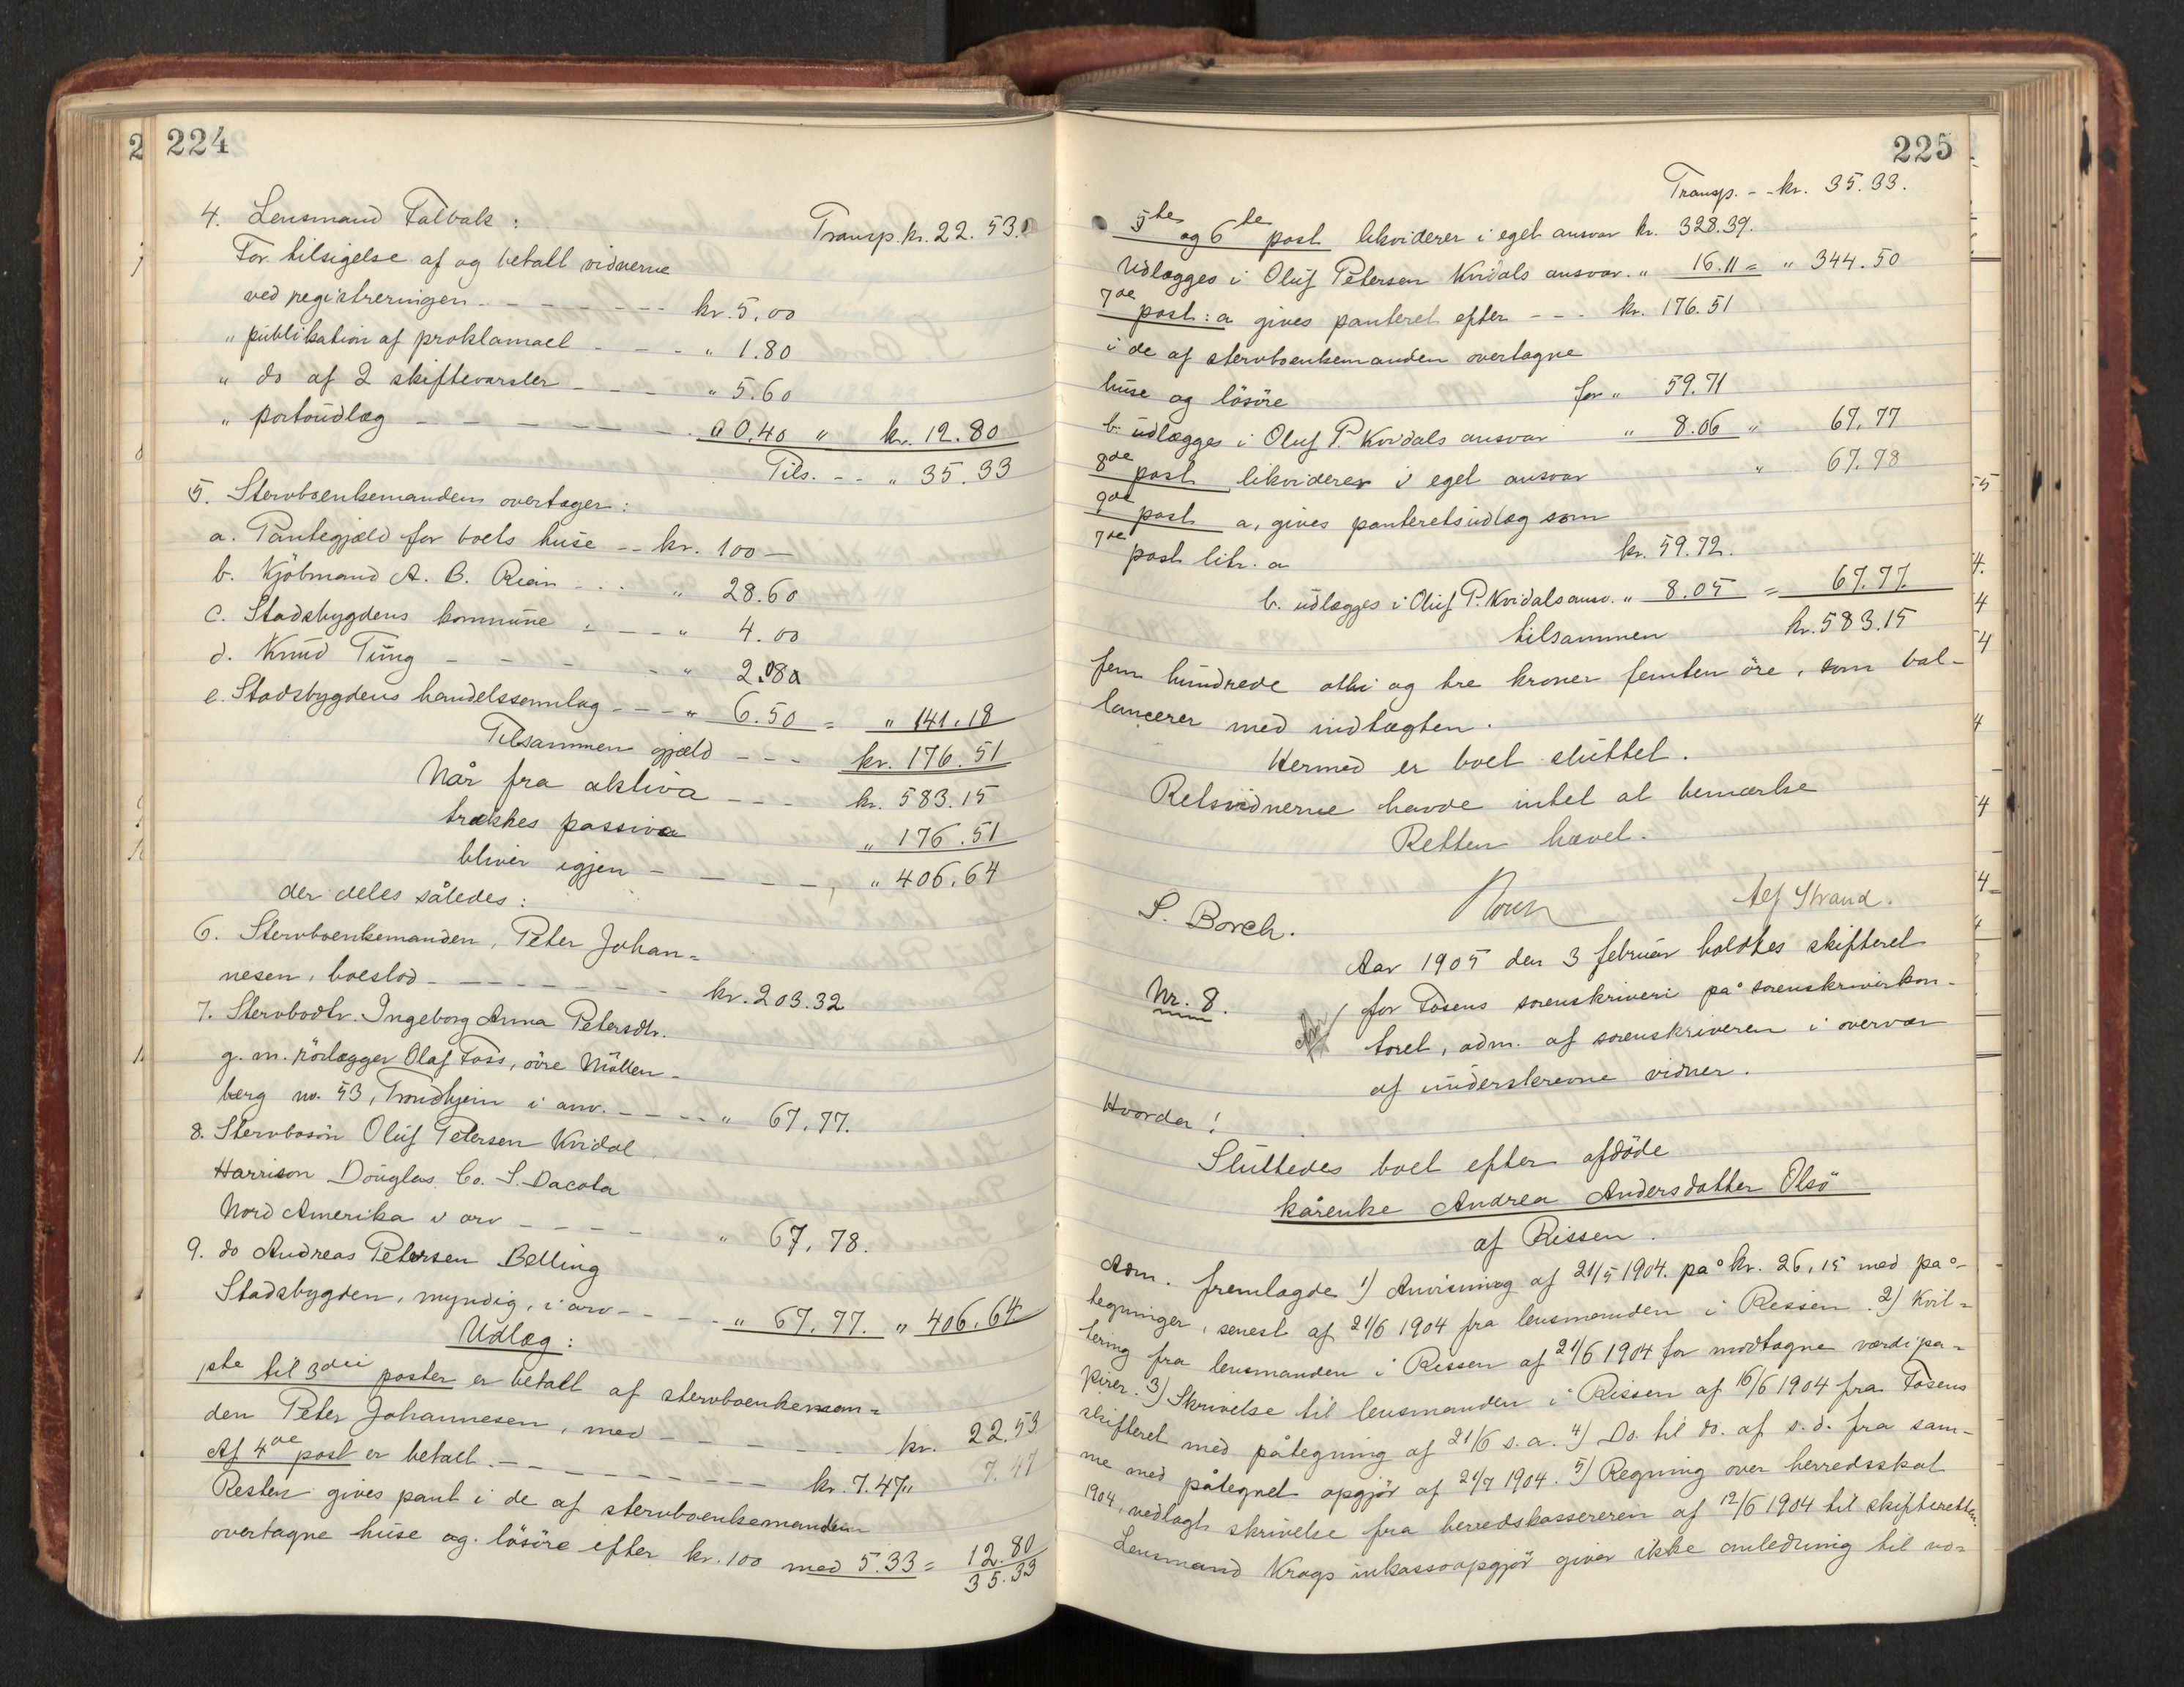 224
Transp. kr. 22.53.
4. Lensmand Falbak:
For tilsigelse af og betalt vidnerne
ved registreringen - - - kr. 5,00
" publikation af proklamaet - - - " 1.80
" do af 2 skiftevarsler - - - " 5.60
" portoudlæg - - - 0.40 " kr. 12.80
Tils. - - " 35.33
5. Stervboenkemanden overtager:
a. Pantegjæld for boets huse - - kr. 100 —
b. Kjöbmand A. B. Rian - - " 28.60
c. Stadsbygdens kommune - - " 4.00
d. Knud Ting - - - " 2.08
e. Stadsbygdens handelssamlag - - - " 6.50 = " 141.18
Tilsammen gjæld - - - kr. 176.51
Når fra aktiva - - - kr. 583.15
trækkes passiva " 176.51
bliver igjen - - - - " 406.64
der deles således:
6. Stervboenkemanden, Peter Johan=
nesen, boeslod - - - kr. 203.32
7. Stervbodtr. Ingeborg Anna Petersdtr.
g. m. rörlægger Olaf Foss, övre Möllen-
berg no. 53, Trondhjem i arv. - - - " 67,77.
8. Stervbosön Oluf Petersen Kvidal
Harrison Douglas Co. S. Dacota
Nord Amerika i arv - - - " 67,78.
9. do Andreas Petersen Belling
Stadsbygden, myndig, i arv - - - " 67,77. " 406.64
Udlæg:
1ste til 3die poster er betalt af stervboenkeman=
den Peter Johannesen, med - - - kr. 22.53
Af 4de post er betalt - - - kr. 7.47 " 7.47
Resten gives pant i de af stervboenkemanden
overtagne huse og lösöre efter kr. 100 med 5.33 = 12.80
35.33
225
Transp. - - kr. 35.33.
5te og 6te post likviderer i eget ansvar kr. 328.39.
Udlægges i Oluf Petersen Kvidals ansvar. " 16.11 = " 344.50
7de post: a gives panteret efter - - - kr. 176.51
i de af stervboenkemanden overtagne
huse og lösöre for " 59.71
b. udlægges i Oluf P. Kvidals ansvar " 8.06 " 67.77
8de post likviderer i eget ansvar " 67.78
9de post a, gives panteretsudlæg som
7de post litr. a kr. 59.72.
b. udlægges i Oluf P. Kvidals ansv. " 8.05 = 67.77.
tilsammen kr. 583.15
fem hundrede otti og tre kroner femten öre, som bal-
lancerer med indtægten.
Hermed er boet sluttet.
Retsvidnerne havde intet at bemærke
Retten hævet.
S. Borch. Alf Strand.
Nr. 8.
Aar 1905 den 3 februar holdtes skifteret
for Fosens sorenskriveri på sorenskriverkon-
toret, adm. af sorenskriveren i overvær
af underskrevne vidner.
Hvorda!
Sluttedes boet efter afdöde
kårenke Andrea Andersdatter Olsö
af Rissen.
Adm. fremlagde 1) Anvisning af 21/5 1904. på kr. 26,15 med på-
tegninger, senest af 21/6 1904 fra lensmanden i Rissen. 2) Kvit=
tering fra lensmanden i Rissen af 21/6 1904 for modtagne værdipa=
pirer. 3) Skrivelse til lensmanden i Rissen af 16/6 1904 fra Fosens
skifteret med påtegning af 21/6 s.a. 4) Do til do. af s.d. fra sam-
me med påtegnet opgjör af 21/7 1904. 5) Regning over herredsskat
1904, vedlagt skrivelse fra herredskassereren af 12/6 1904 til skifteretten.
Lensmand Krogs inkassoopgjör giver ikke anledning til no=